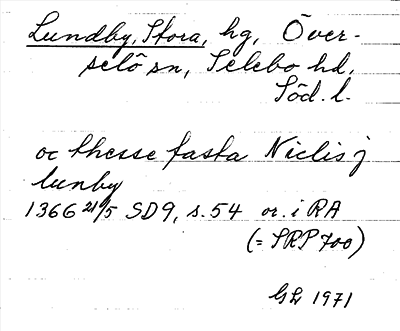 Lundby, Stora, hg, Över-
selö sn, Selebo hd,
Söd. l.
oc thesse fasta Niclis j
lunby
1366 21/5 SD9, s. 54 or. i RA
(= SRP 700)
GL 1971